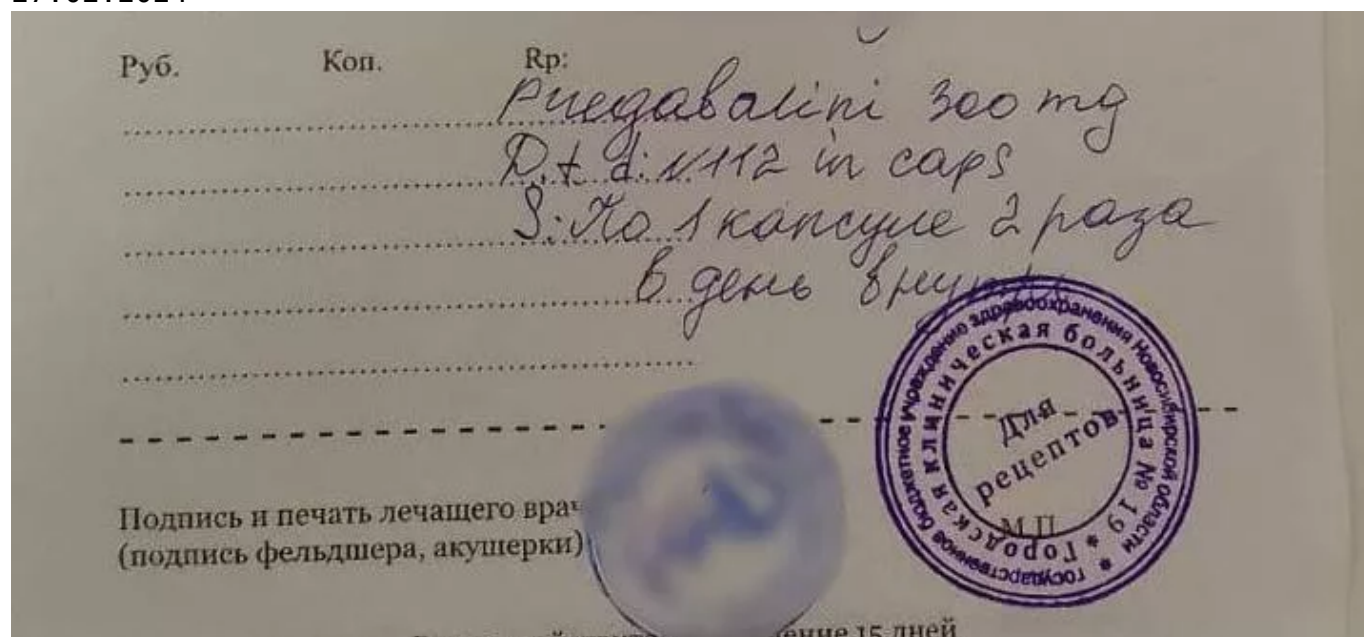 Руб. Коп. Rp:
Pregabalini 300 mg
D.t.d: N112 in caps
S: По 1 капсуле 2 раза
в день внутрь
Государственное бюджетное учреждение здравоохранения Новосибирской области *
Городская клиническая больница № 19 *
Для
рецептов
М.П.
Подпись и печать лечащего врач
(подпись фельдшера, акушерки)
15 дней